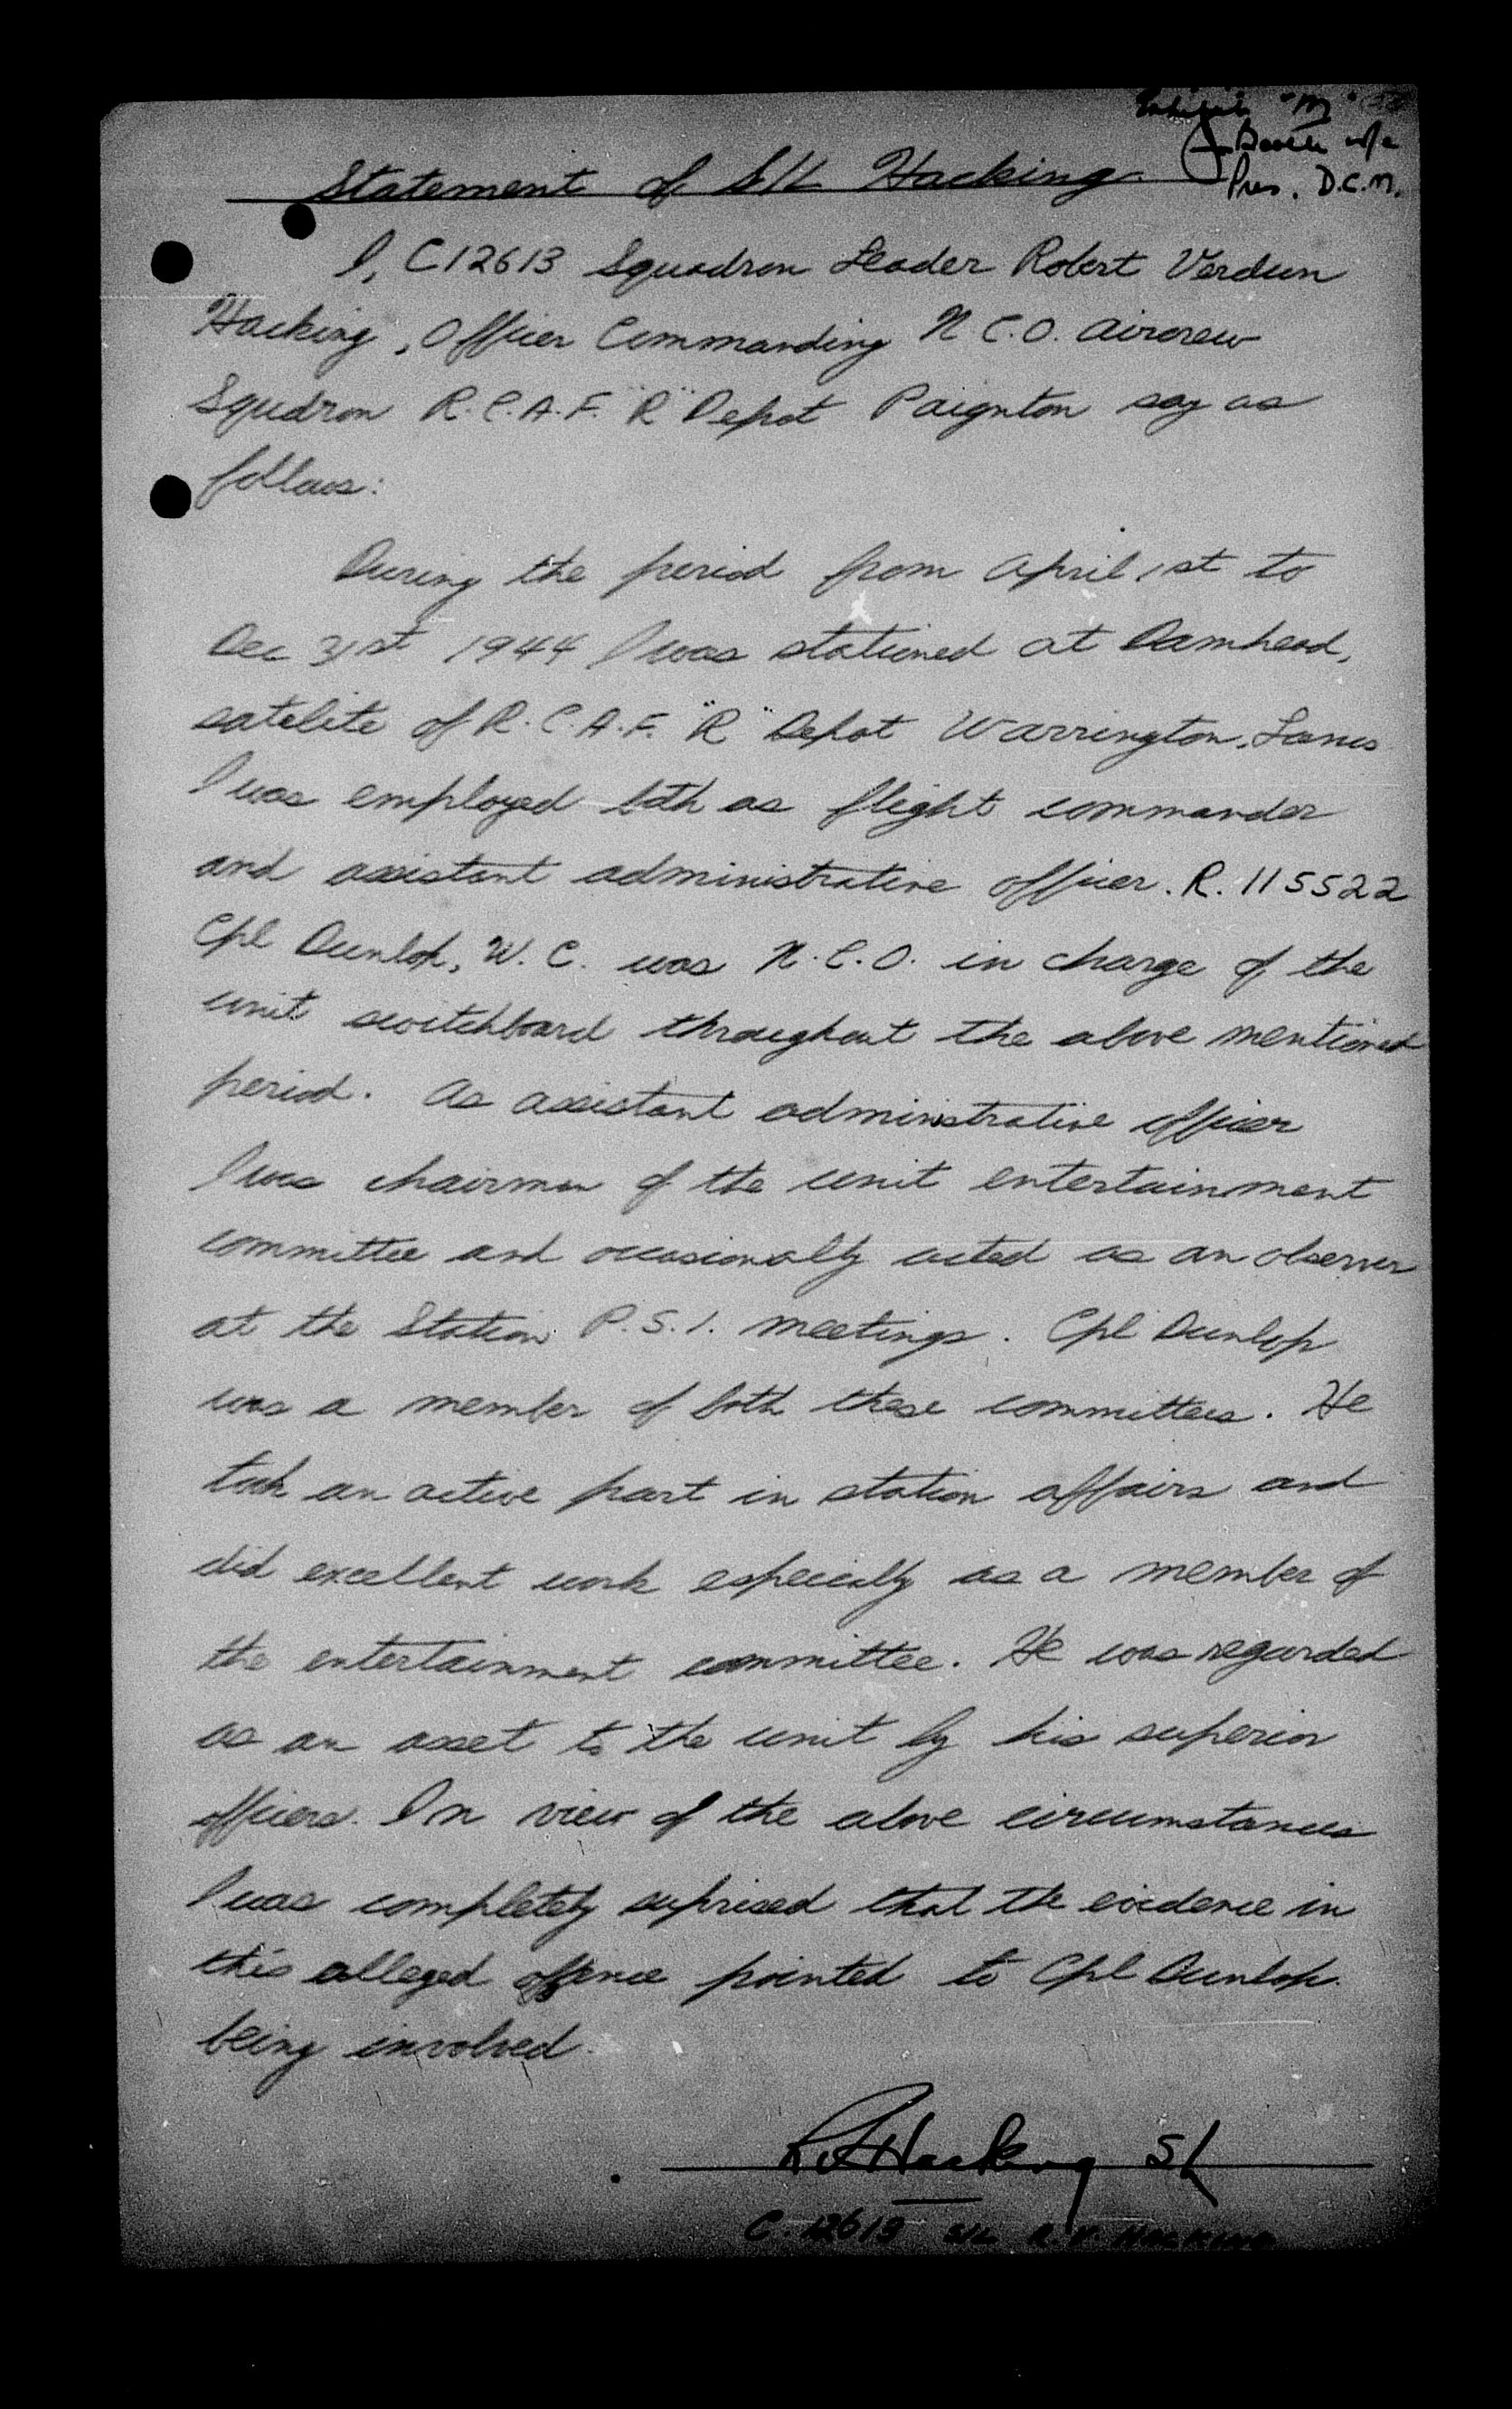 Exhibit "M"
Booth w/c
Pres. D.C.M.
Statement of S/L Hacking
I, C12613 Squadron Leader Robert Verdun
Hacking, Officer Commanding N.C.O. aircrew
Squdron R.C.A.F. "R" Depot Paignton say as
follows:
During the period from April 1st to
Dec 31st 1944 I was stationed at Damhead,
satelite of R.C.A.F. "R" Depot Warrington, Lancs
I was employed both as flight commander
and assistant administrative officer. R. 115522
Cpl Dunlop, W. C. was N.C.O. in charge of the
unit switchboard throughout the above mentioned
period. As assistant administrative officer
I was chairman of the unit entertainment
committee and occasionally acted as an observer
at the Station P.S.I. meetings. Cpl Dunlop
was a member of both these committees. He
took an active part in station affairs and
did excellent work especially as a member of
the entertainment committee. He was regarded
as an asset to the unit by his superior
officers. In view of the above circumstances
I was completely suprised that the evidence in
this alleged offence pointed to Cpl Dunlop
being involved.
R V Hacking S/L
C. 12613 S/L R. V. HACKING